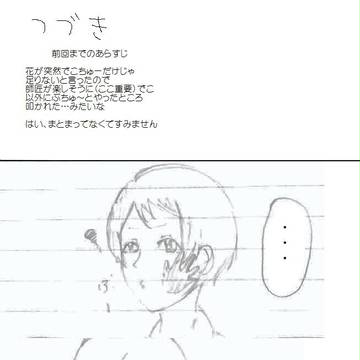 つづき
前回までのあらすじ
花が突然でこちゅーだけじゃ
足りないと言ったので
師匠が楽しそうに（ここ重要）でこ
以外にぶちゅ～とやったところ
叩かれた…みたいな
はい、まとまってなくてすみません
・・・